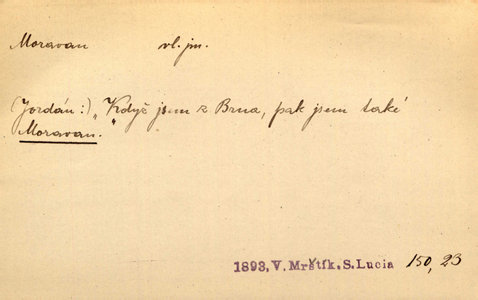 Moravan vl. jm.
(Jordán:) „Když jsem z Brna, pak jsem také
Moravan.
1893, V. Mrštík. S. Lucia 150, 23